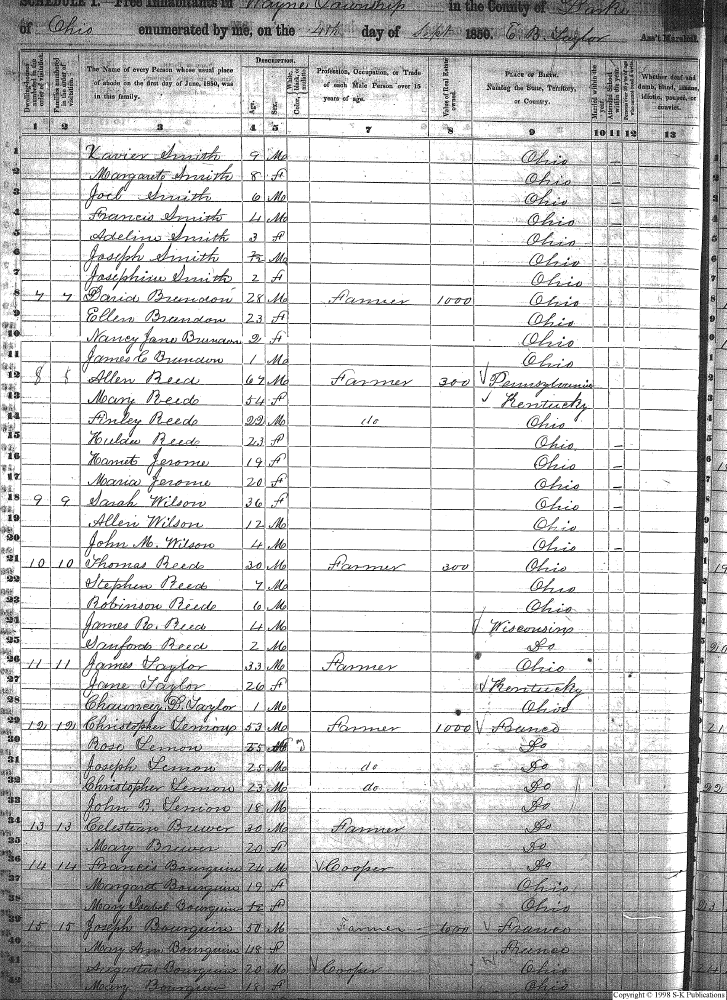 SCHEDULE I.—Free Inhabitants in Wayne Township in the County of Darke State
of Ohio enumerated by me, on the 4th day of Sept 1850. E. B. Taylor Ass't Marshal.
The Name of every Person whose usual place of abode on the first day of June, 1850, was in this family. DESCRIPTION. Age. Sex. White, black, or mulatto. Color, Profession, Occupation, or Trade of each Male Person over 15 years of age. Value of Real Estate owned. PLACE OF BIRTH. Naming the State, Territory, or Country. Married within the year. Whether deaf and dumb, blind, insane, idiotic, pauper, or convict.
1 2 3 4 5 7 8 9 10 11 12 13
1 Xavier Smith 9 M Ohio –
2 Margarete Smith 8 f Ohio –
3 Joel Smith 6 M Ohio –
4 Francis Smith 4 M Ohio
5 Adeline Smith 3 f Ohio
6 Joseph Smith M Ohio
7 Josephine Smith 2 f Ohio
8 7 7 David Brandon 28 M Farmer 1000 Ohio
9 Ellen Brandon 23 f Ohio
10 Nancy Jane Brandon 2 f Ohio
11 James C Brandon 1 M Ohio
12 8 8 Allen Reed 67 M Farmer 300 Pennsylvania
13 Mary Reed 54 f Kentucky
14 Finley Reed 22 M do Ohio
15 Hulda Reed 23 f Ohio –
16 Jerome 19 f Ohio –
17 Maria Jerome 20 f Ohio –
18 9 9 Sarah Wilson 36 f Ohio –
19 Allen Wilson 12 M Ohio
20 John M. Wilson 4 M Ohio –
21 10 10 Thomas Reed 30 M Farmer 300 Ohio
22 Stephen Reed 7 M Ohio
23 Robinson Reed 6 M Ohio
24 James R. Reed 4 M Wisconsin
25 Sanford Reed 2 M Do
26 11 11 James Taylor 33 M Farmer Ohio
27 Jane Taylor 26 f Kentucky
28 Chauncey D. Taylor 1 M Ohio
29 12 12 Christopher Lemon 53 M Farmer 1000 France
30 Rose Lemon 55 Do
31 Joseph Lemon 25 M do Do
32 Christopher Lemon 23 M do Do
33 John B. Lemon 18 M Do
34 13 13 Celestian Brewer 30 M Farmer Do
35 Mary Brewer 20 f Do
36 14 14 Francis Bourguin 24 M Cooper Do
37 Margaret Bourguin 19 f Ohio
38 Mary Isabel Bourguin f Ohio
39 15 15 Joseph Bourguin 50 M Farmer 1000 France
40 Mary Ann Bourguin 48 f France
41 Augustus Bourguin 20 M Cooper Ohio
42 Mary Bourguin 18 f Ohio
Copyright © 1998 S-K Publications